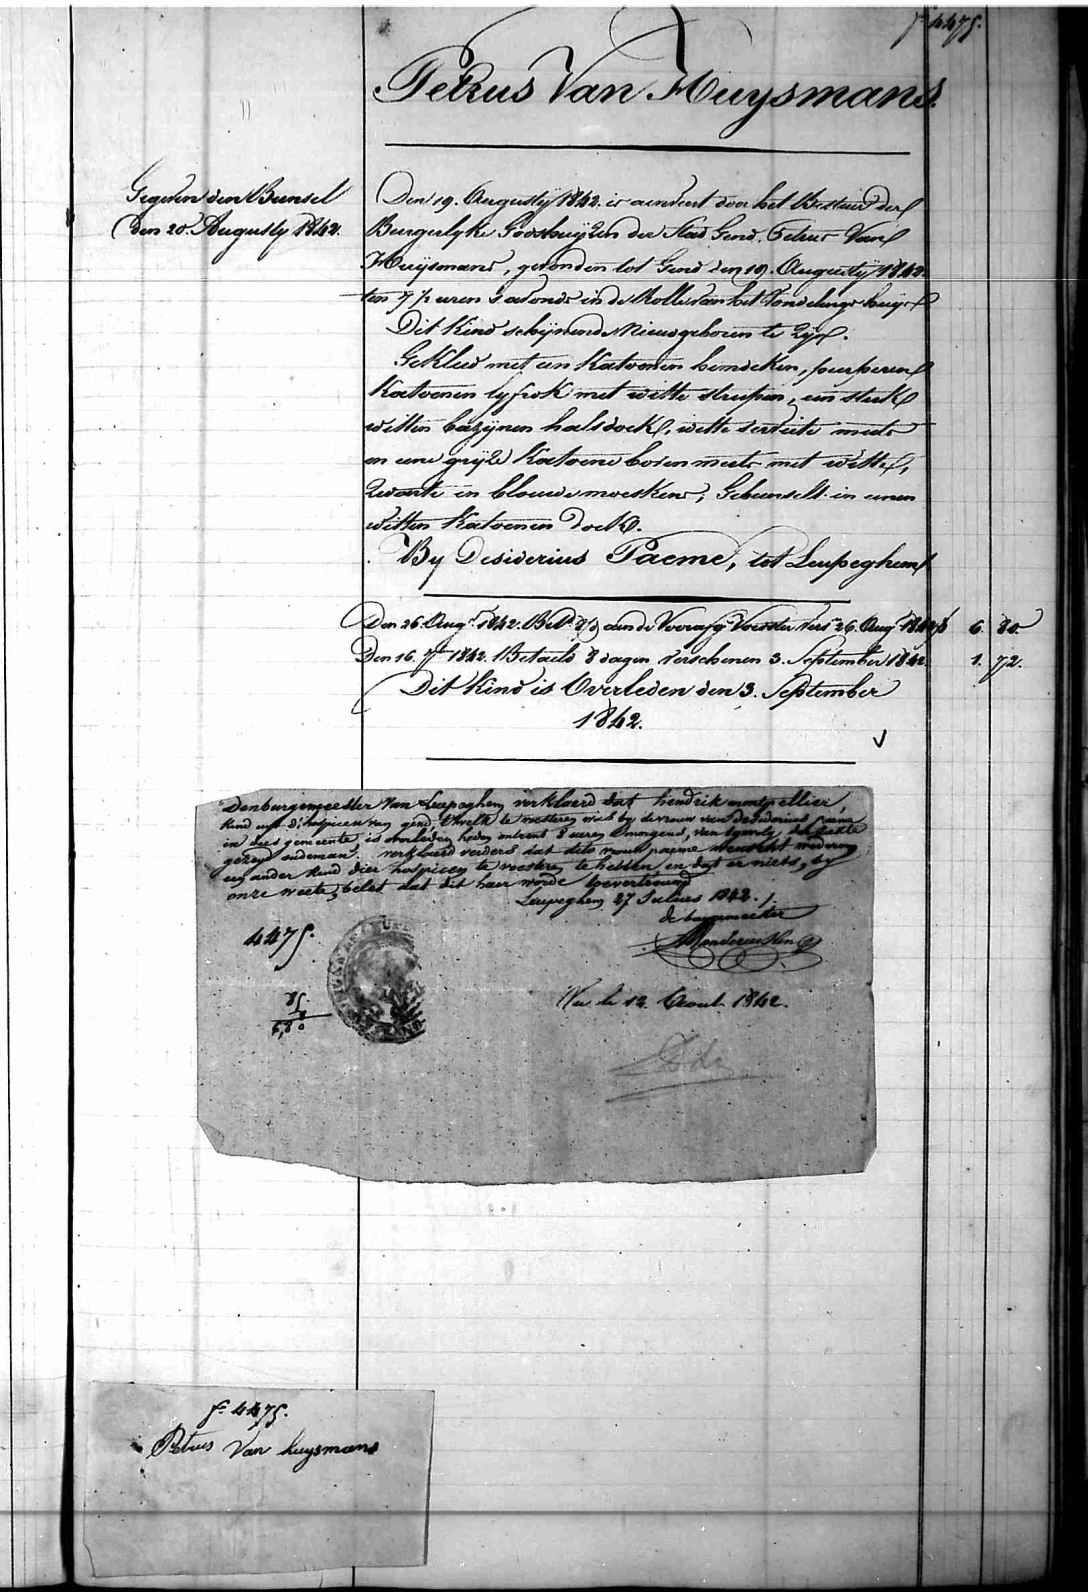 f° 4475.
Petrus Van Huysmans
Gegeven den Bunsel
den 20. Augusty 1842.
Den 19. Augusty 1842. is aenveirt door het Bestuer der
Burgerlyke Godshuyzen der Stad Gend, Petrus Van
Huysmans, gevonden tot Gend den 19. Augusty 1842.
ten 7 1/2 uren s'avonds in de Rolle van het Vondelings huys
Dit Kind schijnende Nieuwgeboren te Zyn.
Gekleed met een Katoenen hemdeken, purperen
Katoenen lyfrok met witte streepen, een stuk
witten bazynen halsdoek, witte serviette muts
en eene grijze Katoene boven muts met witte,
Zwarte en blauwe moeskens, Gebunselt in eenen
witten Katoenen doek.
By Desiderius Paeme, tot Leupeghem
Den 26. Aug. 1842. Bet. aen de Voorafg Voedster vers 26. Aug 1842 6. 80.
Den 16. 7br 1842. Betaeld 8 dagen Verschenen 3. September 1842. 1. 72.
Dit Kind is Overleden den 3. September
1842.
Denburgemeester Van Leupeghem verklaerd dat hendrik montpellier,
kind uyt d'hospicen van gend, twelk te voesteren was by de vrouw van desiderius paeme
in dees gemeente, is overleden heden ontrent 8 uren smorgens, van gevolg der ziekte
gezeyd oudeman. verklaerd verders dat dits vrouw paeme wenscht wederom
een ander kind dier hospicen te voesteren te hebben en dat er niets, by
onze weete, belet dat dit haer worde toevertrouwd
Leupeghem 27 Julius 1842.
de burgmeester
4475.
85
8
6,80
Vu le 12 Aout 1842.
f° 4475.
Petrus Van huysmans